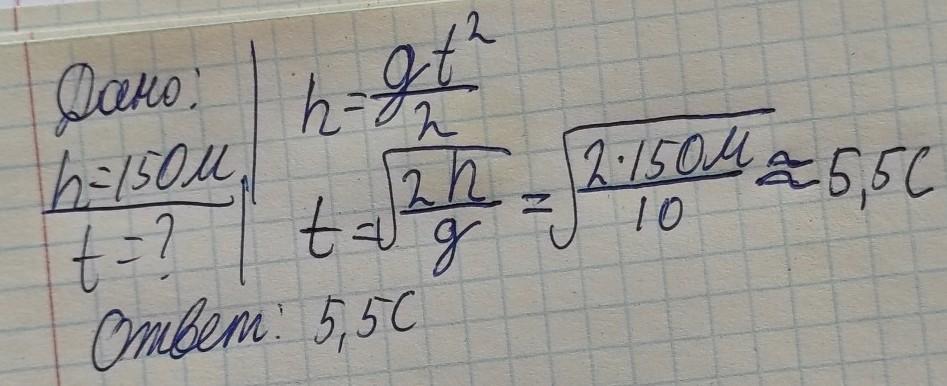 Дано:
h=150м
t=?
h=gt²/2
t=√(2h/g)=√(2·150м/10)≈5,5с
Ответ: 5,5с